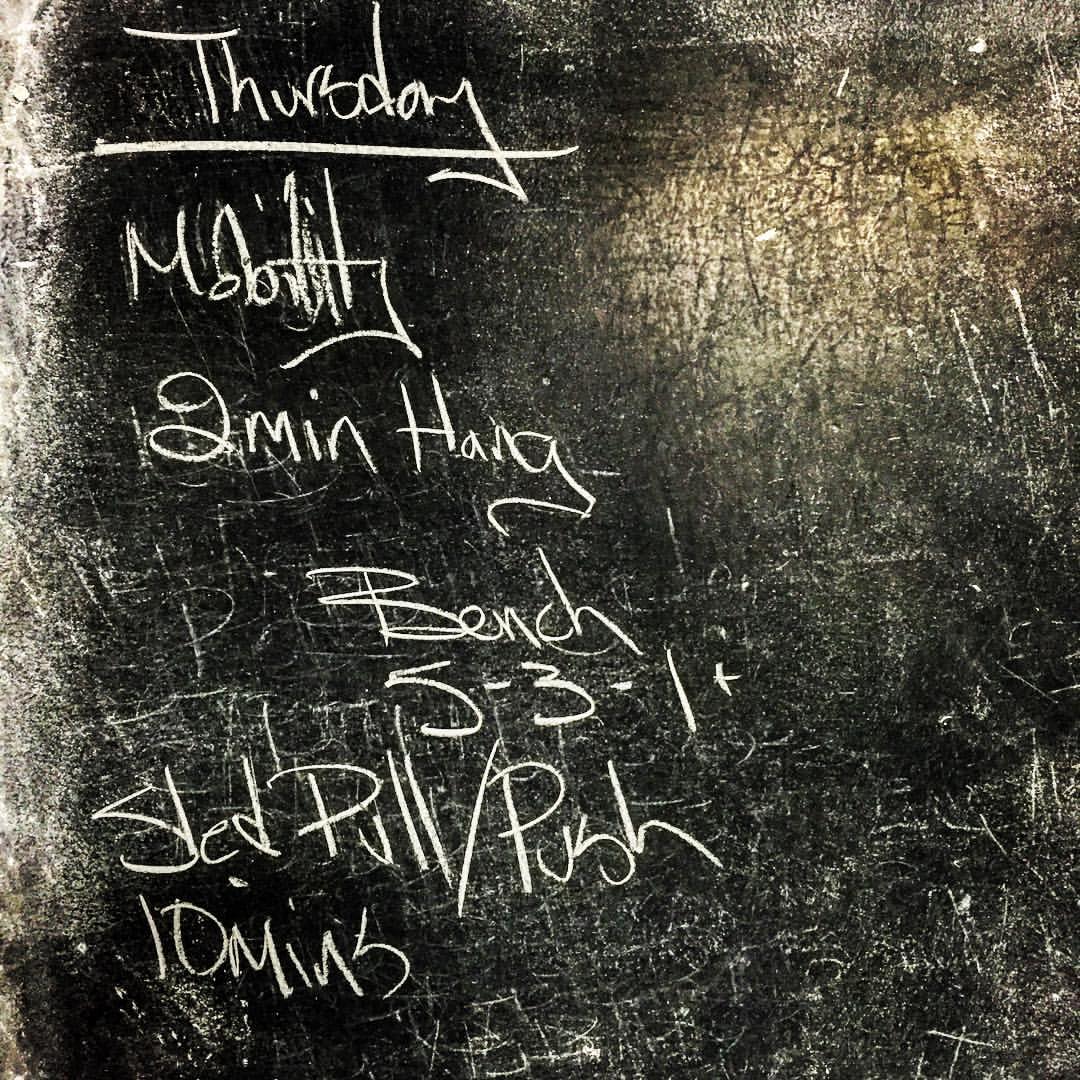 Thursday
Mobility
2min Hang
Bench
5-3-1+
Sled Pull/Push
10mins